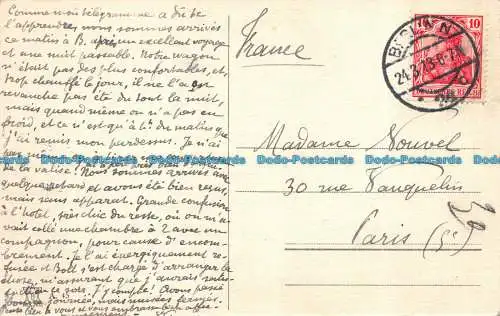 Comme mon télégramme a dû te
l'apprendre, nous sommes arrivés
ce matin à B. après un excellent voyage
et une nuit passable. Notre wagon
n'était pas des plus confortables, et
trop chauffé le jour, il ne l'a en
revanche pas été du tout la nuit,
mais quand même on n'a pas eu
froid, et ce n'est qu'à du matin que
j'ai remis mon pardessus. Je n'ai
de la valise! Nous sommes arrivés avec
quelque retard et avons été bien reçus,
mais sans apparent. Grande confusion
à l'hôtel, très chic du reste, où on m'a
vait collé une chambre à 2 avec un
compagnon, pour cause d'encom-
brement. Je l'ai énergiquement re-
fusée et s'est chargé d'arranger la
chose,
ce soir. J'y compte! Avons passé
France
BERLIN
24.3.13.6-7
10
DEUTSCHES REICH
Madame Nouvel
30 rue Vauquelin
Paris (5e)
Dodo-Postcards Dodo-Postcards Dodo-Postcards Dodo-Postcards